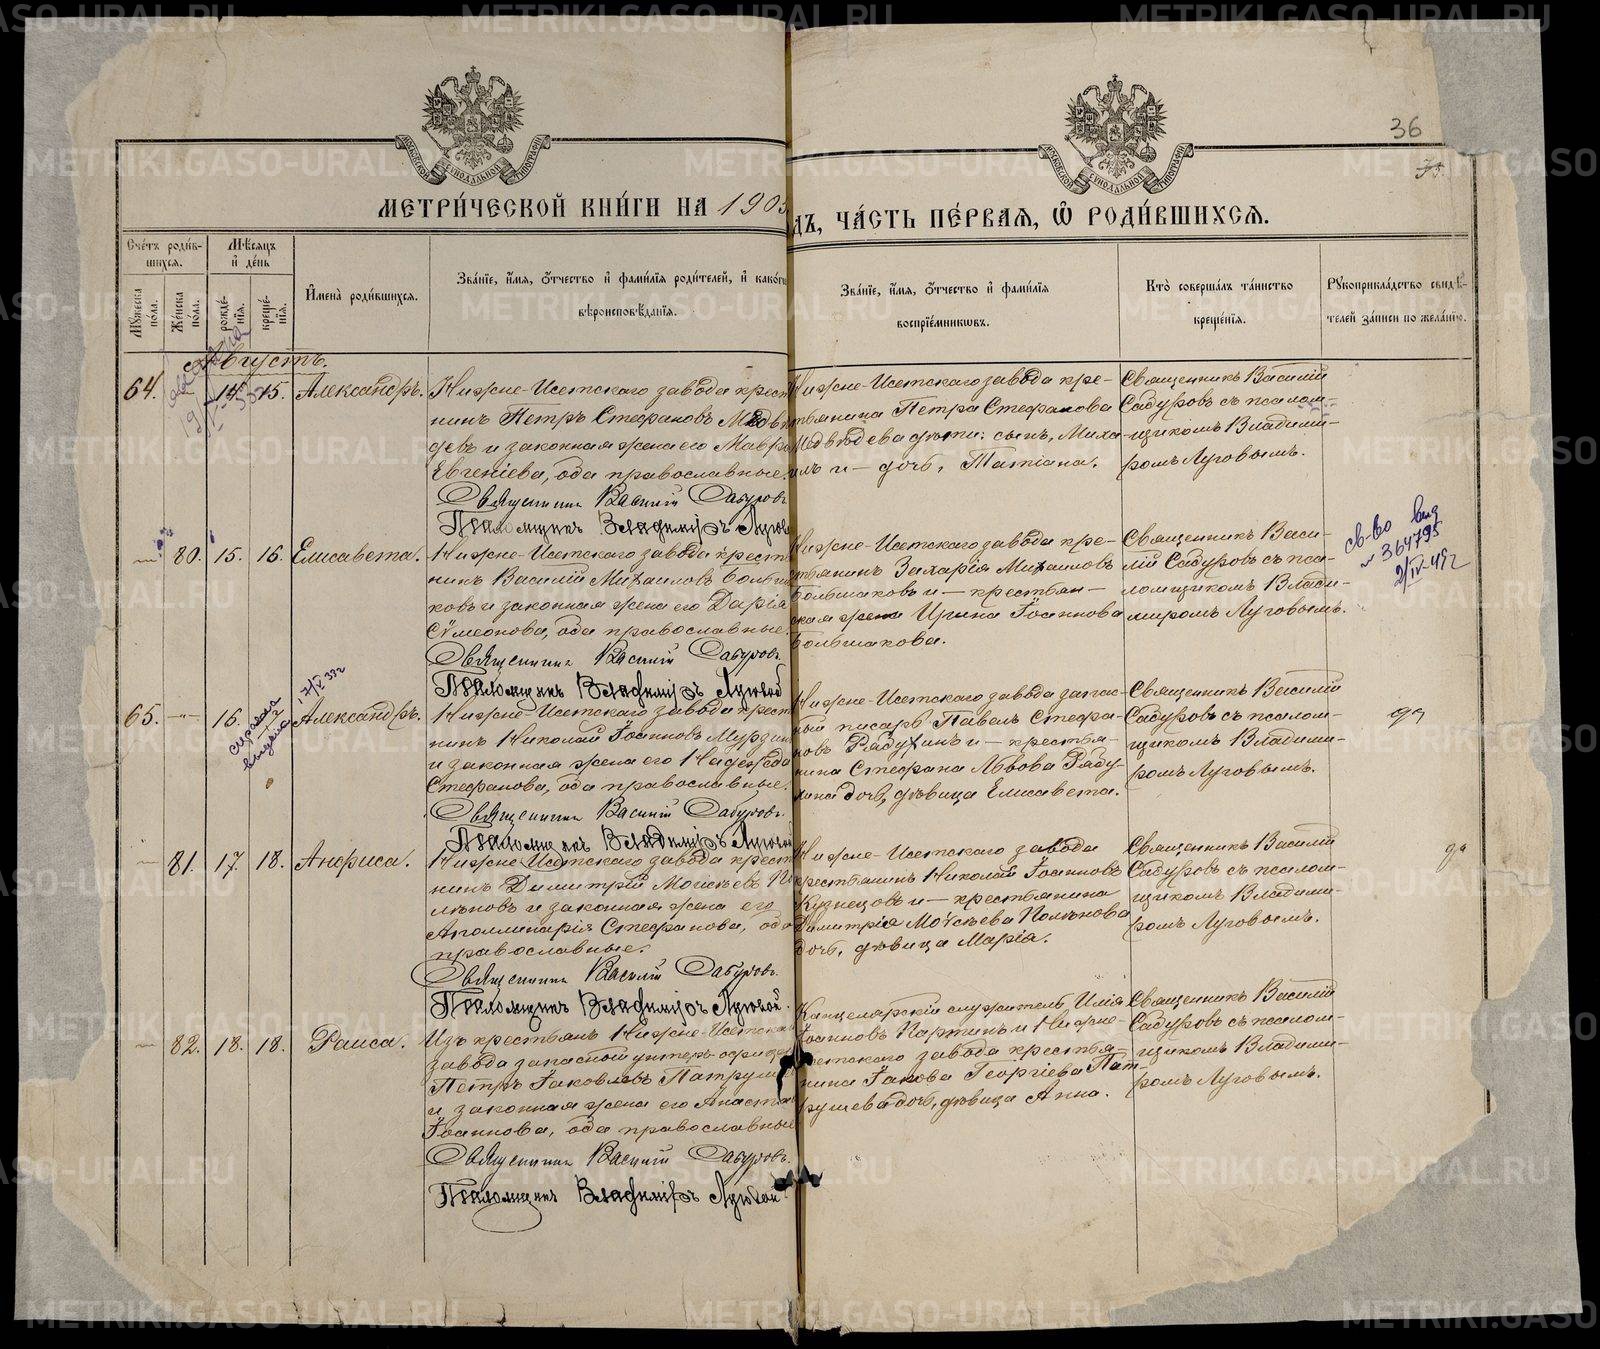 36
МЕТРИ́ЧЕСКОЙ КНИ́ГИ НА 1903
ДЪ, ЧА́СТЬ ПЕ́РВАЯ, Ѽ РОДИ́ВШИХСЯ.
Сче́тъ роди́в-
шихся.
Мѣ́сяцъ
и де́нь
Му́жеска по́ла.
Же́нска по́ла.
рожде́-
нія.
креще́-
нія.
Имена̀ роди́вшихся.
Зва́ніе, и́мя, о́тчество и фами́лія роди́телей, и како́го
вѣроисповѣ́данія.
Зва́ніе, и́мя, о́тчество и фами́лія
воспріе́мниковъ.
Кто̀ соверша́лъ та́инство
креще́нія.
Рукоприкла́дство свидѣ́-
телей за́писи по жела́нію.
Августъ.
64. 14. 15. Александръ.
Нижне-Исетскаго завода крест
нинъ Петръ Стефановъ Медвѣ
девъ и законная жена его Мавра
Евгеніева, оба православные.
Священникъ Василій Сабуровъ
Псаломщикъ Владиміръ Лугов
Нижне-Исетскаго завода кре-
стьянина Петра Стефанова
Медвѣдева дѣти: сынъ, Миха-
илъ и – дочь, Татіана.
Священникъ Василій
Сабуровъ съ псалом-
щикомъ Владими-
ромъ Луговымъ.
80. 15. 16. Елисавета.
Нижне-Исетскаго завода крест
нинъ Василій Михаиловъ Больша
ковъ и законная жена его Дарія
Сѵмеонова, оба православные.
Священникъ Василій Сабуровъ
Псаломщикъ Владиміръ Луговой
Нижне-Исетскаго завода кре-
стьянинъ Захарія Михаиловъ
Большаковъ и – крестьян-
ская жена Ирина Іоаннова
Большакова.
Священникъ Васи-
лій Сабуровъ съ пса-
ломщикомъ Влади-
миромъ Луговымъ.
св-во выд
№ 364795
2/IV-45г
65. 16. Александръ.
17/IV 33г
Нижне-Исетскаго завода крест
нинъ Николай Іоанновъ Мурзин
и законная жена его Надежда
Стефанова, оба православные.
Священникъ Василій Сабуровъ
Псаломщикъ Владиміръ Луговой
Нижне-Исетскаго завода запас-
ный писарь Павелъ Стефа-
новъ Рябухинъ и – крестья-
нина Стефана Львова Рябу-
хина дочь, дѣвица Елисавета.
Священникъ Василій
Сабуровъ съ псалом-
щикомъ Владими-
ромъ Луговымъ.
81. 17. 18. Анфиса.
Нижне-Исетскаго завода крест
нинъ Димитрій Моисѣевъ По
лѣновъ и законная жена его
Аполлинарія Стефанова, оба
православные.
Священникъ Василій Сабуровъ
Псаломщикъ Владиміръ Луговой.
Нижне-Исетскаго завода
крестьянинъ Николай Іоанновъ
Кузнецовъ и – крестьянина
Димитрія Моѵсѣева Полѣнова
дочь, дѣвица Марія.
Священникъ Василій
Сабуровъ съ псалом-
щикомъ Владими-
ромъ Луговымъ.
82. 18. 18. Раиса.
Изъ крестьянъ Нижне-Исетска
завода запасной унтеръ-офицер
Петръ Іаковлевъ Патруше
и законная жена его Анаста
Іоаннова, оба православные
Священникъ Василій Сабуровъ.
Псаломщикъ Владиміръ Луговой
Канцелярскій служитель Илія
Іоанновъ Паргинъ и Нижне-
Исетскаго завода крестья-
нина Іакова Георгіева Пат-
рушева дочь, дѣвица Анна.
Священникъ Василій
Сабуровъ съ псалом-
щикомъ Владими-
ромъ Луговымъ.
METRIKI.GASO-URAL.RU